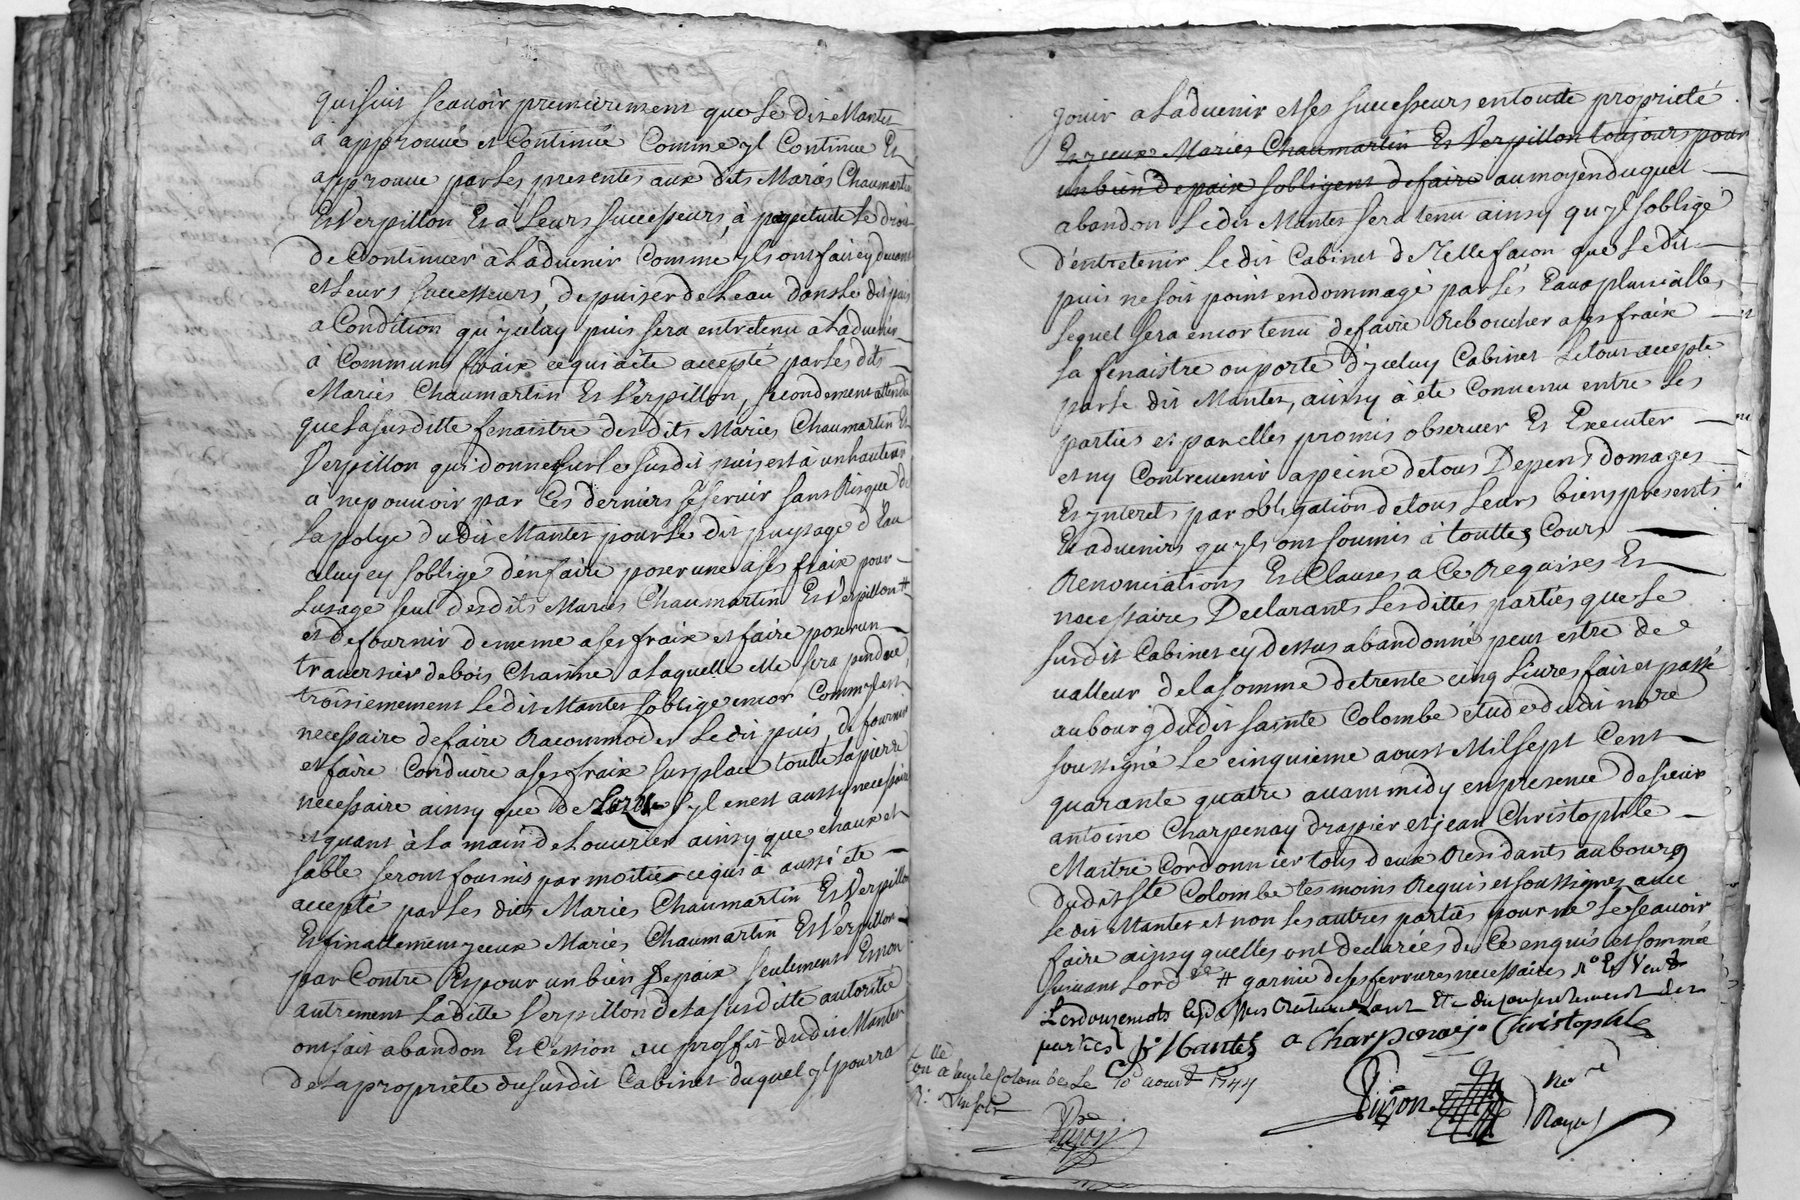 quisuit scauoir premierement que le dit Mantes
a approuué et Continué Comme yl Continue Et
approuue par les presentes aux dits Mariés Chaumartin
Et Verpillon Et à Leurs successeurs, à perpetuité Le droit
de Continuer à L'aduenir Comme yls ont fait cy deuant
et Leurs successeurs, de puiser de L'eau dans Le dit puis
a Condition qu'jceluy puis sera entretenu a L'aduenir
à Communs fraix ce qui a été accepté par les dits
Mariés Chaumartin Et Verpillon, secondement attendu
que La susditte fenaistre desdits Mariés Chaumartin Et
Verpillon qui donne sur le susdit puis est à un hauteur
a ne pouuoir par Ces derniers se seruir sans Risque de
La polye dudit Mantes pour Le dit puysage d'Eau
celuy cy s'oblige d'en faire poser une a ses fraix pour
L'usage seul desdits Mariés Chaumartin Et Verpillon #
et de fournir de meme a ses fraix et faire poser un
trauersier de bois Chainne a Laquelle elle sera pendue,
troisiemement Ledit Mantes s'oblige encor Comm'jl est
necessaire de faire Racommoder Le dit puis, de fournir
et faire Conduire a ses fraix sur place toutte La pierre
necessaire ainsy que de s'yl en est aussy necessaire
et quant à La main de L'ouurier ainsy que chaux et
sable seront fournis par moitié ce qui à aussi été
accepté par Les dits Mariés Chaumartin Et Verpillon
Et finallement yceux Mariés Chaumartin Et Verpillon
par Contre Et pour un bien de paix seulement Et non
autrement Laditte Verpillon de La susditte autorité
ont fait abandon Et Cession au proffit dudit Mantes
de La propriete du susdit Cabinet duquel yl pourra
jouir a L'aduenir et ses successeurs en toutte proprieté
Et yceux Mariés Chaumartin Et Verpillon toujours pour
un bien de paix s'obligent de faire au moyen duquel
abandon Le dit Mantes sera tenu ainsy qu'yl s'oblige
d'entretenir Le dit Cabinet de Telle facon que Le dit
puis ne soit point endommagé par Les Eaux pluuialles,
Lequel sera encor tenu de faire Reboucher a ses fraix
La fenaistre ou porte d'yceluy Cabinet Le tout accepté
par Le dit Mantes, ainsy à été Conuenu entre Les
parties et par elles promis obseruer Et Executer
et ny Contreuenir a peine de tous Depens domages
Et ynterets par obligation de tous Leurs biens presents
Et aduenirs qu'yls ont soumis à touttes Cours
Renonciations Et Clauses a Ce Requises Et
necessaires, Declarants Lesdittes parties que Le
susdit Cabinet cy dessus abandonné peut estre de
ualleur de La somme de trente cinq Liures fait et passé
au bourg dudit sainte Colombe etude dudit no^re
soussigné Le cinquieme aoust Mil sept Cent
quarante quatre auant midy en presence de sieur
antoine Charpenay drapier et jean Christophle
Maitre Cordonnier tous deux Residants au bourg
dudit Ste Colombe temoins Requis et soussignez auec
Le dit Mantes et non Les autres parties pour ne Le scauoir
faire ainsy quelles ont declarées de Ce enquis et sommé
suiuant Lord^ce # garnie de ses ferrures necessaires
Les douze mots cy dessus du consentement des
parties Mantes a Charpenay j. Christophle
Con^lle a sainte Colombe Le 10 aoust 1744
Dujon No^re Royal
Dujon